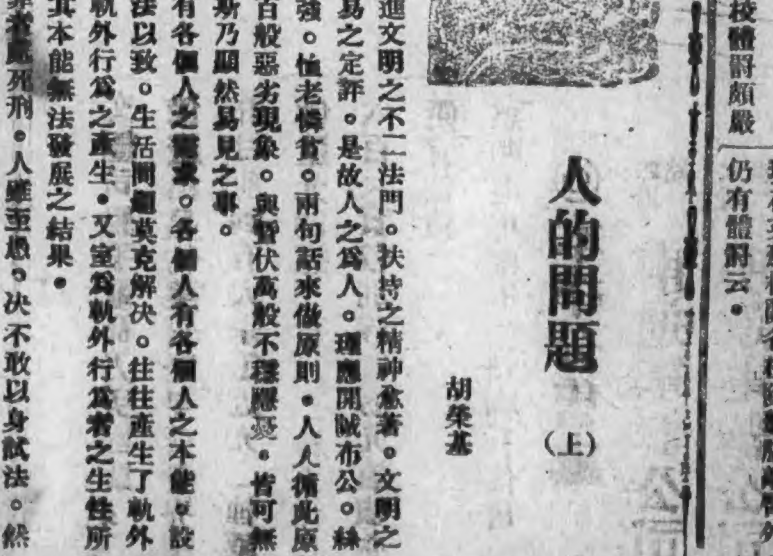 校體罰頗嚴
仍有體罰云。
人的問題
(上)
胡榮基
進文明之不二法門。扶持之精神愈著。文明之
易之定評。是故人之爲人。理應開誠布公。絲
強。恤老憐貧。兩句話來做原則。人人循此原
百般惡劣現象。與暫伏萬般不穩隱憂。皆可無
斯乃顯然易見之事。
有各個人之。各個人有各個人之本能。設
法以致。生活問題莫克解決。往往產生了軌外
軌外行爲之產生。又豈爲軌外行爲者之生性所
其本能無法發展之結果。
罪者處死刑。人雖至愚。決不敢以身試法。然